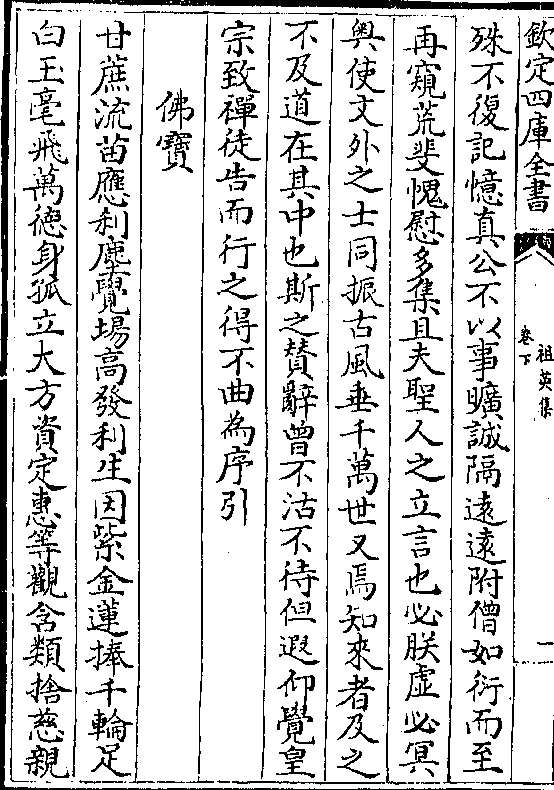 欽定四庫全書
祖英集
卷下
一
殊不復記憶真公不以事曠誠隔遠遠附僧如衍而至
再窺荒斐愧慰多集且夫聖人之立言也必朕虛必冥
奥使文外之士同振古風垂千萬世又焉知來者及之
不及道在其中也斯之賛辭曾不沽不待但遐仰覺皇
宗致禪徒告而行之得不曲為序引
佛寶
甘蔗流苗應刹塵覺場高發利生因紫金蓮捧千輪足
白玉毫飛萬德身孤立大方資定惠等觀含類捨慈親